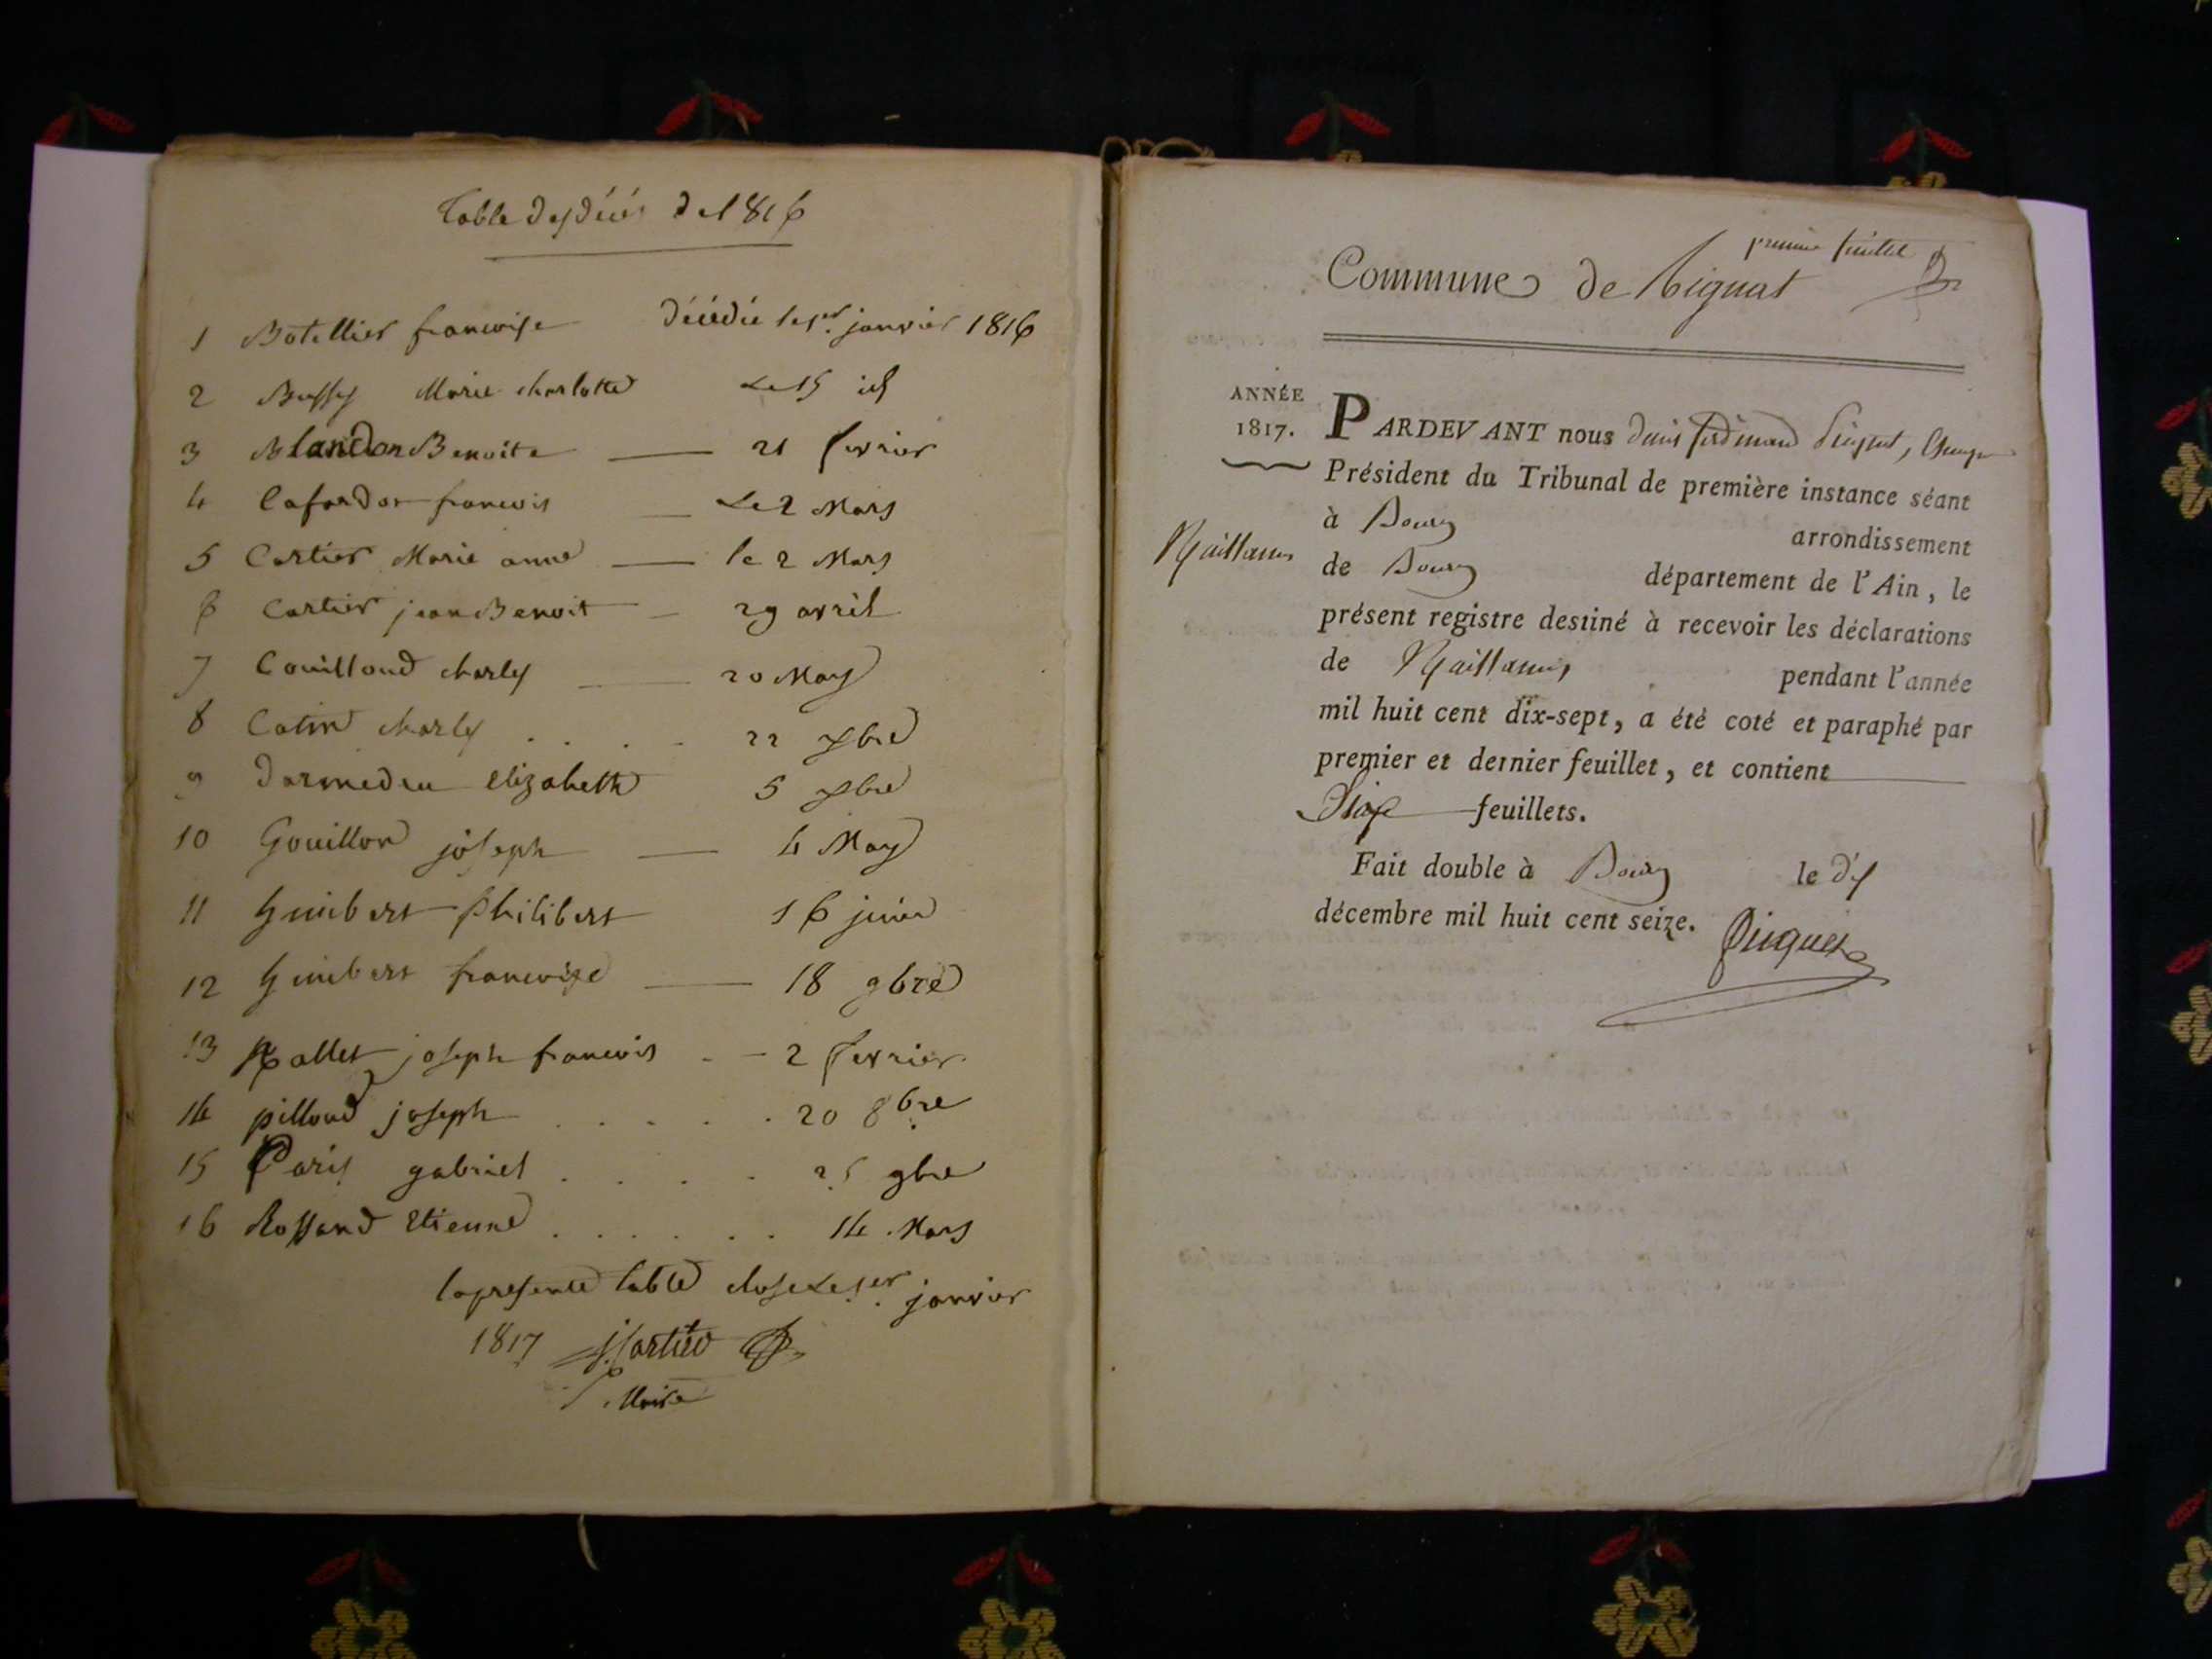 Table des décès de 1816
1 Batellier francoise décédée le 1er janvier 1816
2 Bussy Marie charlotte Le 15 id
3 Blandon Benoite 21 fevrier
4 francois Le 2 Mars
5 Cartier Marie anne le 2 Mars
6 Cartier jean Benoit 29 avril
7 Couilloud charles 20 May
8 Catin charles 22 7bre
9 elizabeth 5 7bre
10 Gouillon joseph 4 May
11 Guibert Philibert 16 juin
12 Guibert francoise 18 9bre
13 joseph francois 2 fevrier
14 pilloud joseph 20 8bre
15 Paris gabriel 25 9bre
16 Rossand Etienne 14 Mars
la presente table close Le 1er janvier
1817 Cartier
Maire
premier feuillet
Commune de Tignat
ANNÉE
1817.
PARDEVANT nous denis ferdinand Piquet,
Président du Tribunal de première instance séant
à Bourg arrondissement
Naissances
de Bourg département de l'Ain, le
présent registre destiné à recevoir les déclarations
de Naissances pendant l'année
mil huit cent dix-sept, a été coté et paraphé par
premier et dernier feuillet, et contient
feuillets.
Fait double à Bourg le dix
décembre mil huit cent seize.
Piquet